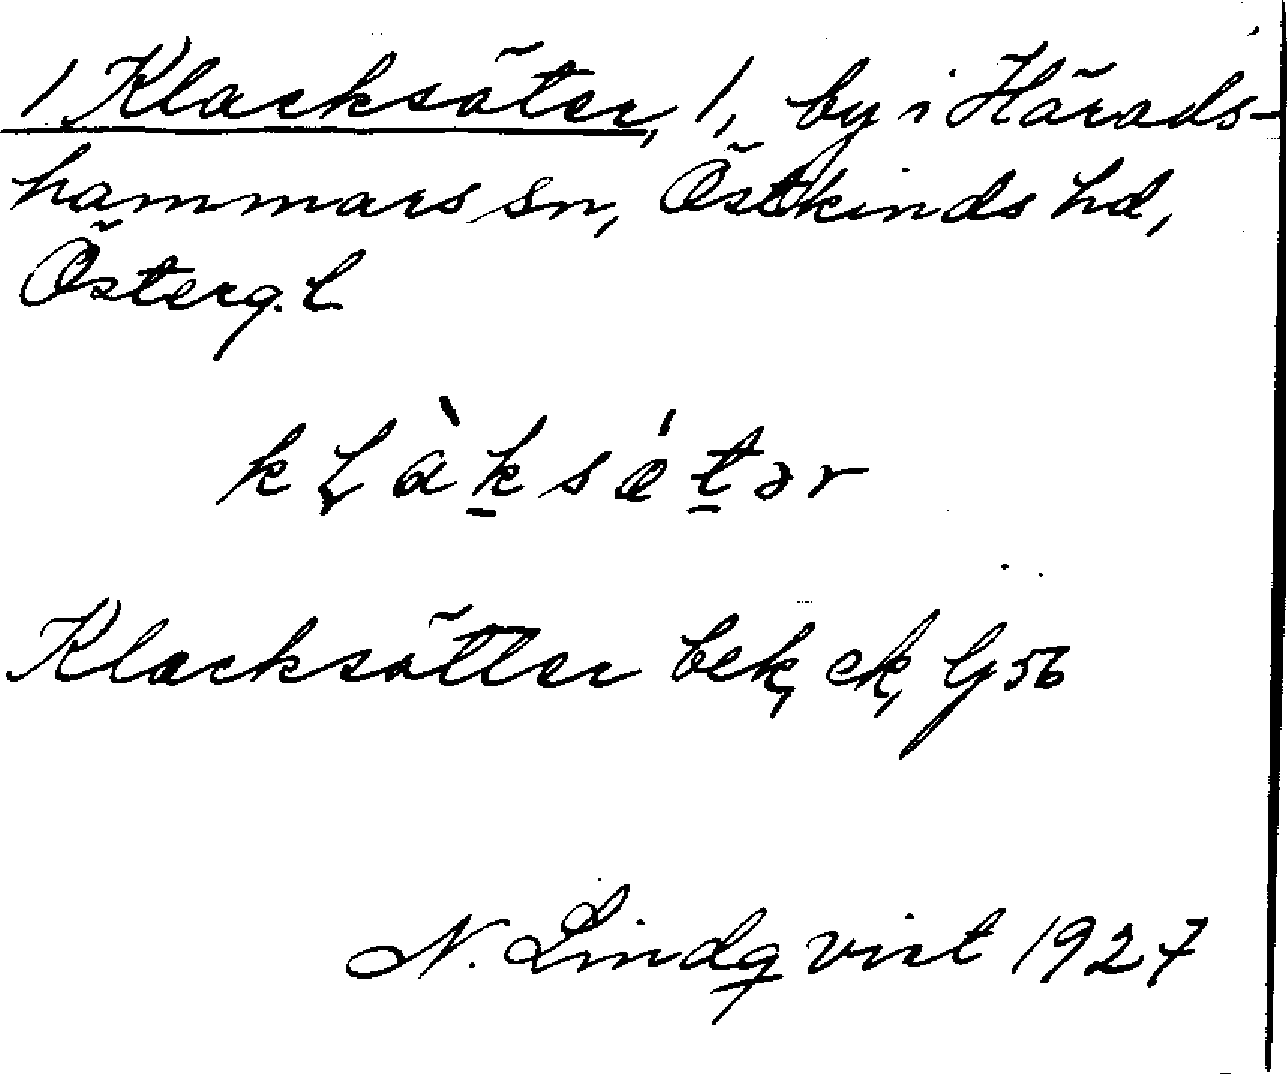 1 Klacksäter, 1, by i Härads-
hammars sn, Östkinds hd,
Österg. l
kl̥àk̲sǽt̲ər
Klacksätter bek, ek, Gj 56
N. Lindqvist 1927